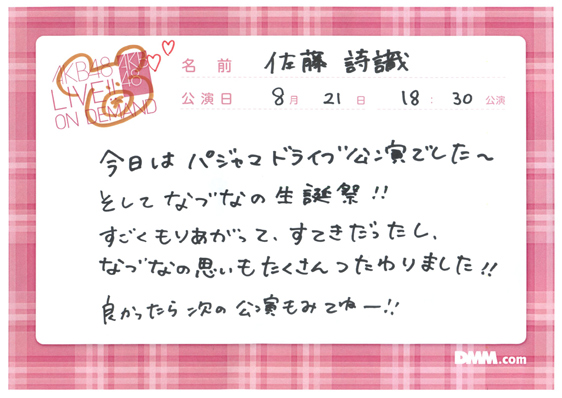 AKB48
LIVE!!
ON DEMAND
AKB
48
名前 佐藤 詩識
公演日 8月 21日 18:30公演
今日は パジャマドライブ公演でした〜
そして なづなの 生誕祭!!
すごくもりあがって、すてきだったし、
なづなの思いもたくさんつたわりました!!
良かったら 次の 公演もみてねー!!
DMM.com